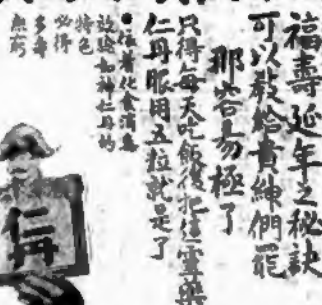 福壽延年之秘訣
可以教給貴紳們罷
那容易極了
只得每天吃飯後把這靈藥
仁丹服用五粒就是了
化食消毒
效驗如神仁丹的
特色
必得
多壽
無窮
仁丹